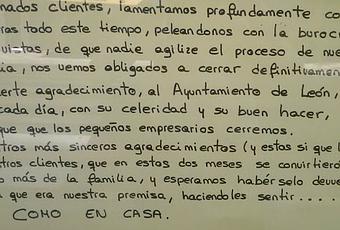 nados clientes, lamentamos profundamente co
ras todo este tiempo, peleandonos con la buroc
uistas, de que nadie agilize el proceso de nue
ia, nos vemos obligados a cerrar definitivamen
erte agradecimiento, al Ayuntamiento de León,
cada día, con su celeridad y su buen hacer,
que que los pequeños empresarios cerremos.
tros más sinceros agradecimientos (y estos si que l
tros clientes, que en estos dos meses se convirtiero
o más de la familia, y esperamos habérselo devue
que era nuestra premisa, haciendoles sentir....
COMO EN CASA.